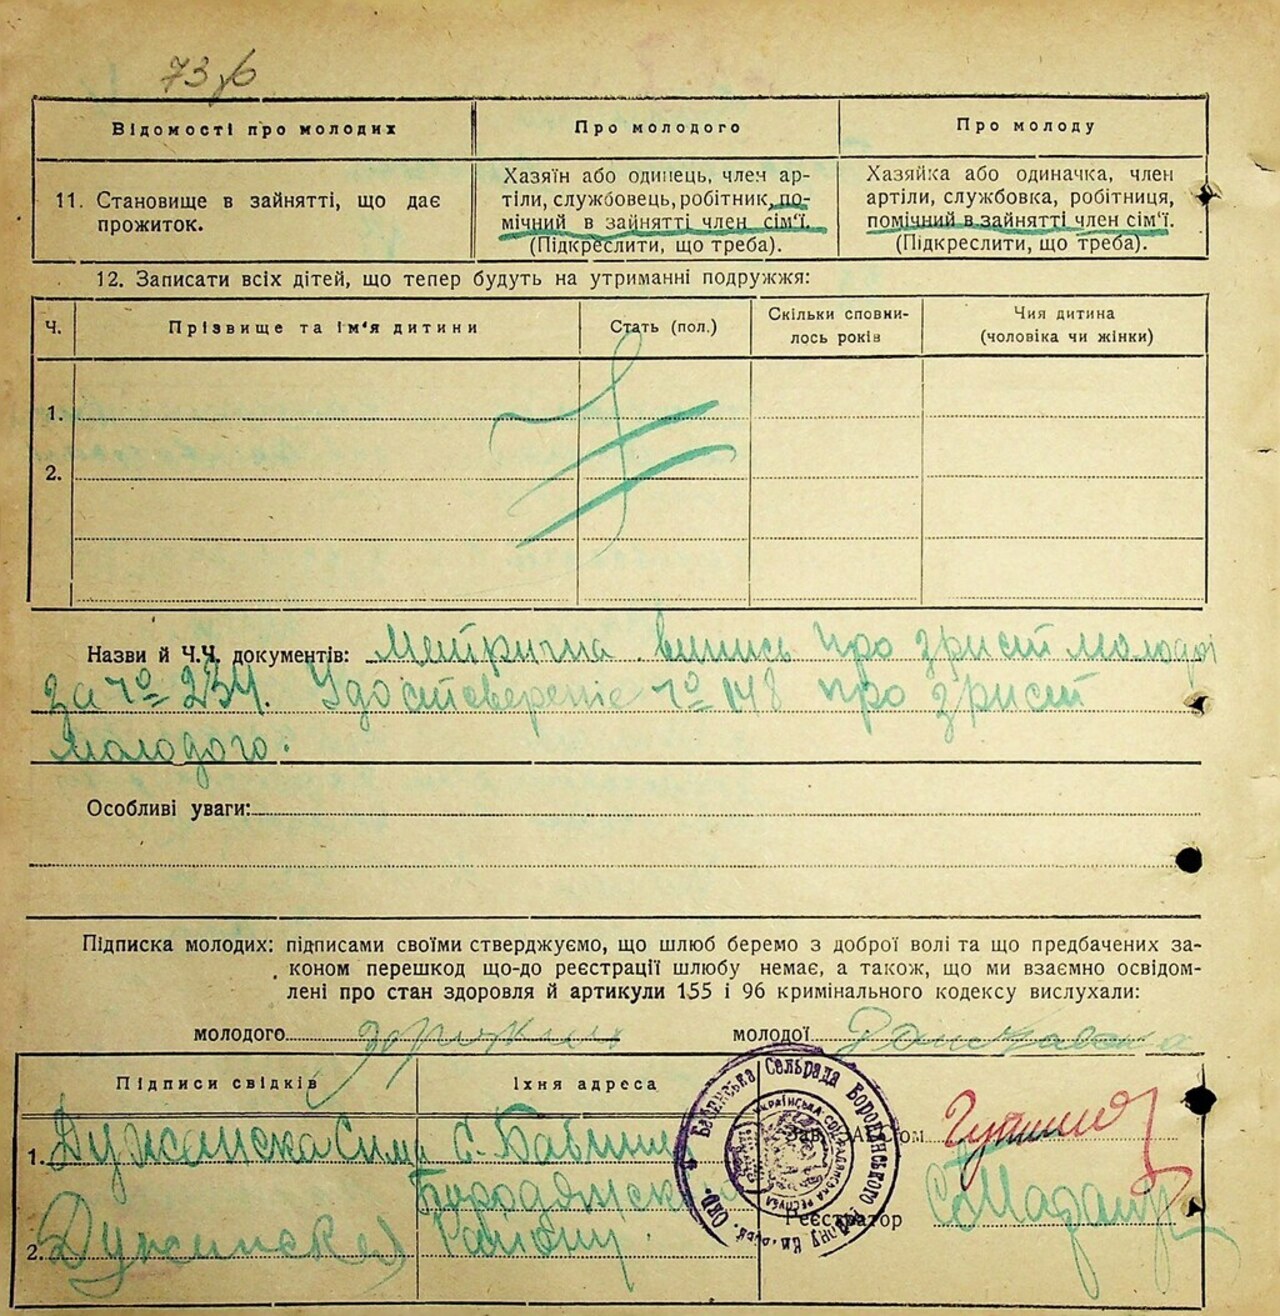 73
Відомості про молодих
Про молодого
Про молоду
11. Становище в зайнятті, що дає
прожиток.
Хазяїн або одинець, член ар-
тілі, службовець, робітник, по-
мічний в зайнятті член сім'ї.
(Підкреслити, що треба).
Хазяйка або одиначка, член
артілі, службовка, робітниця,
помічний в зайнятті член сім'ї.
(Підкреслити, що треба).
12. Записати всіх дітей, що тепер будуть на утриманні подружжя:
Ч.
Прізвище та ім'я дитини
Стать (пол.)
Скільки сповни-
лось років
Чия дитина
(чоловіка чи жінки)
1.
2.
Назви й Ч.Ч. документів: Метрична випись про зрист молодої
за № 234. Удостсверение № 148 про зрист
молодого.
Особливі уваги:
Підписка молодих: підписами своїми стверджуємо, що шлюб беремо з доброї волі та що предбачених за-
коном перешкод що-до реєстрації шлюбу немає, а також, що ми взаємно освідом-
лені про стан здоровля й артикули 155 і 96 кримінального кодексу вислухали:
молодого
молодої
Підписи свідків
Їхня адреса
1.
с.
Бородянськ
2.
Району.
Сельрада Бородянського
Українська Соц. Радянська Республіка
Реєстратор